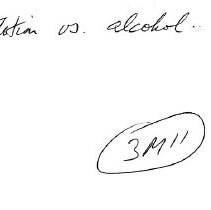 lotion vs. alcohol..
3M11